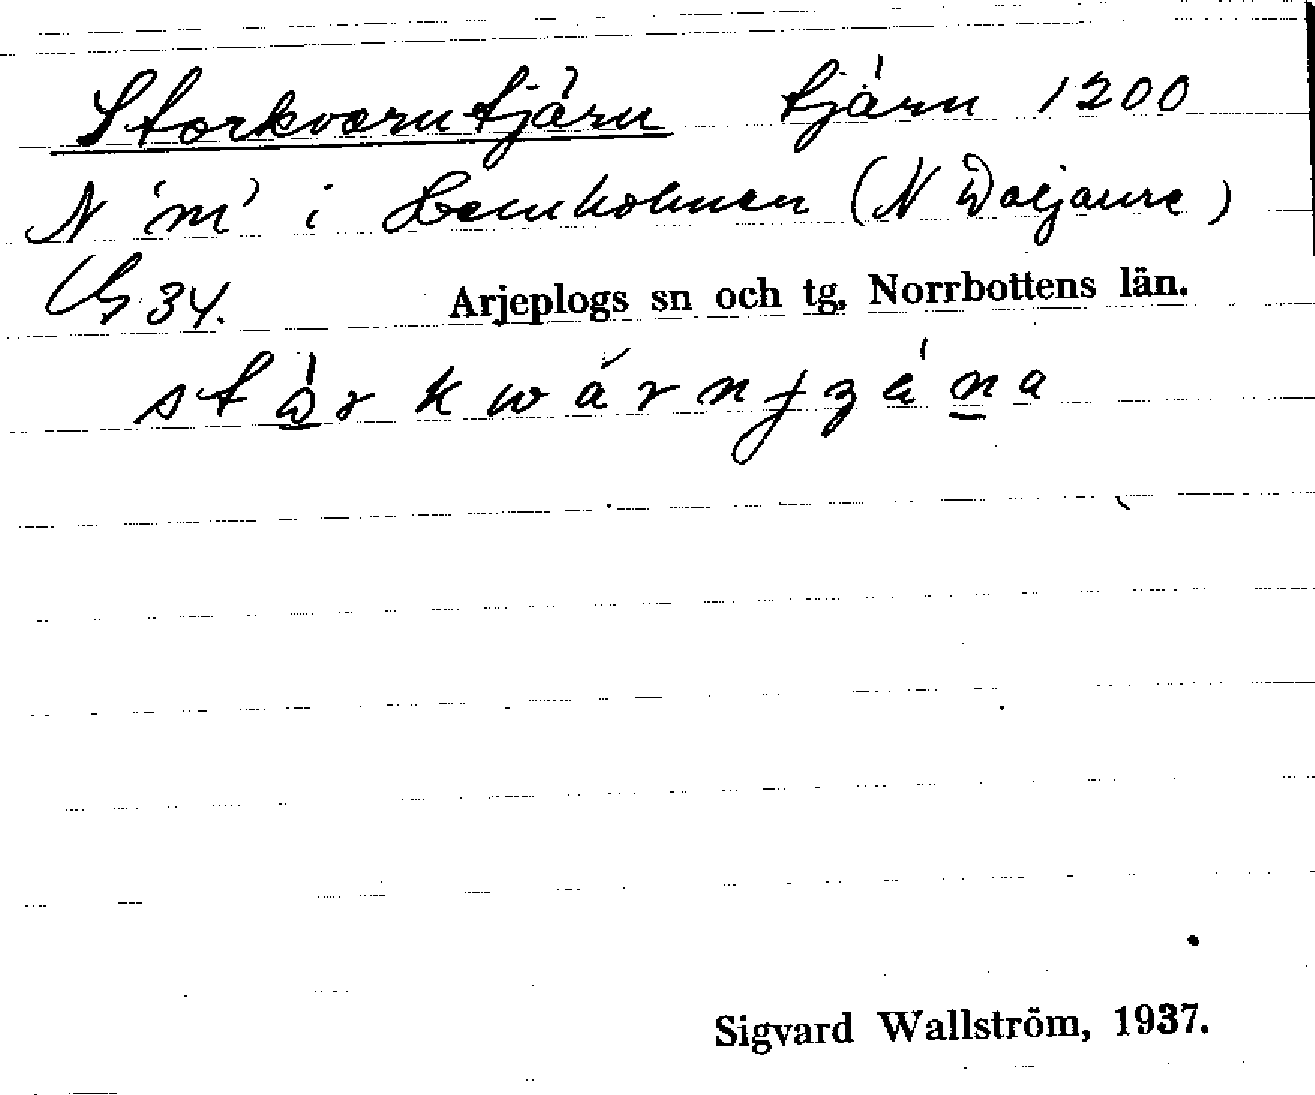 Storkvarntjärn tjärn 1200
N 'm' i Hemholmen (N Woljaure)
34.
Arjeplogs sn och tg, Norrbottens län.
Sigvard Wallström, 1937.